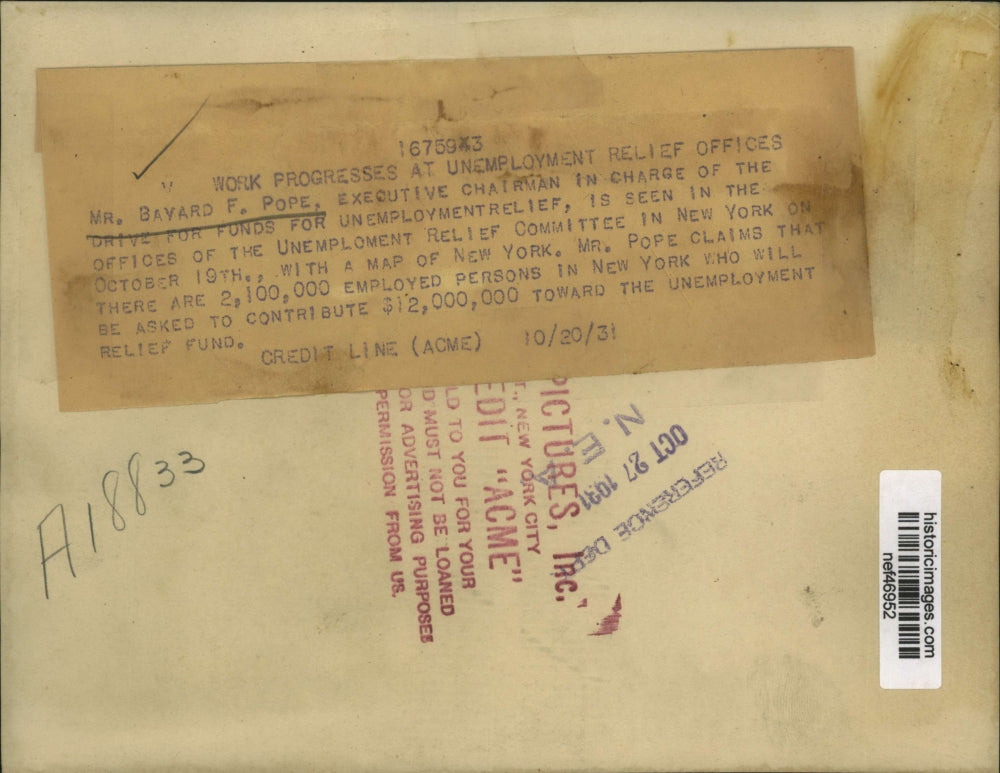 1675943
WORK PROGRESSES AT UNEMPLOYMENT RELIEF OFFICES
MR. BAYARD F. POPE, EXECUTIVE CHAIRMAN IN CHARGE OF THE
DRIVE FOR FUNDS FOR UNEMPLOYMENTRELIEF, IS SEEN IN THE
OFFICES OF THE UNEMPLOMENT RELIEF COMMITTEE IN NEW YORK ON
OCTOBER 19TH., WITH A MAP OF NEW YORK. MR. POPE CLAIMS THAT
THERE ARE 2,100,000 EMPLOYED PERSONS IN NEW YORK WHO WILL
BE ASKED TO CONTRIBUTE $12,000,000 TOWARD THE UNEMPLOYMENT
RELIEF FUND.
CREDIT LINE (ACME) 10/20/31
A18833
PICTURES, INC.
NEW YORK CITY
EDIT "ACME"
LD TO YOU FOR YOUR
D MUST NOT BE LOANED
OR ADVERTISING PURPOSES
PERMISSION FROM US.
N. E. A
OCT 27 1931
REFERENCE DE
historicimages.com
nef46952